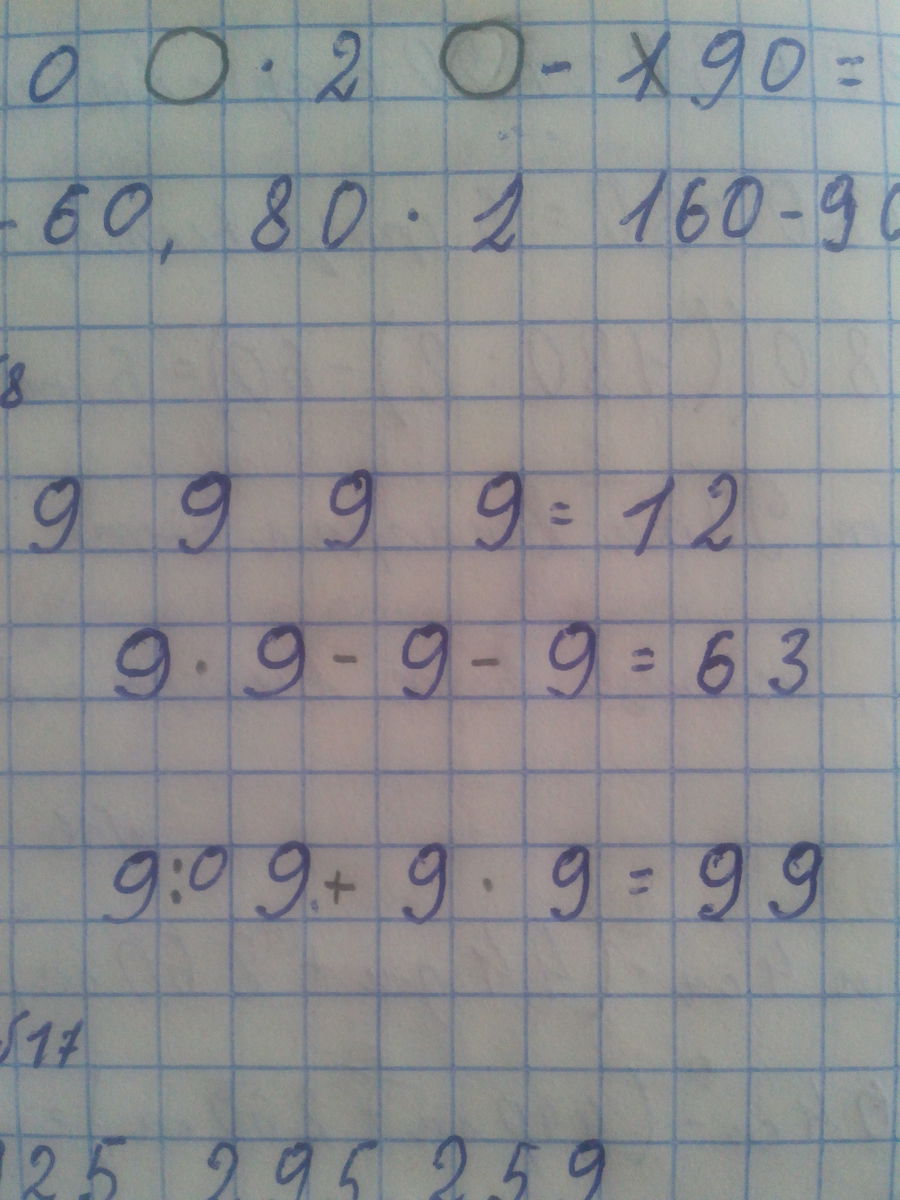 0 ○ · 2 ○ - 90 =
- 60, 80 · 2 160 - 90
8
9 9 9 9 = 12
9 · 9 - 9 - 9 = 63
9 : 9 + 9 · 9 = 99
17
125 295 259